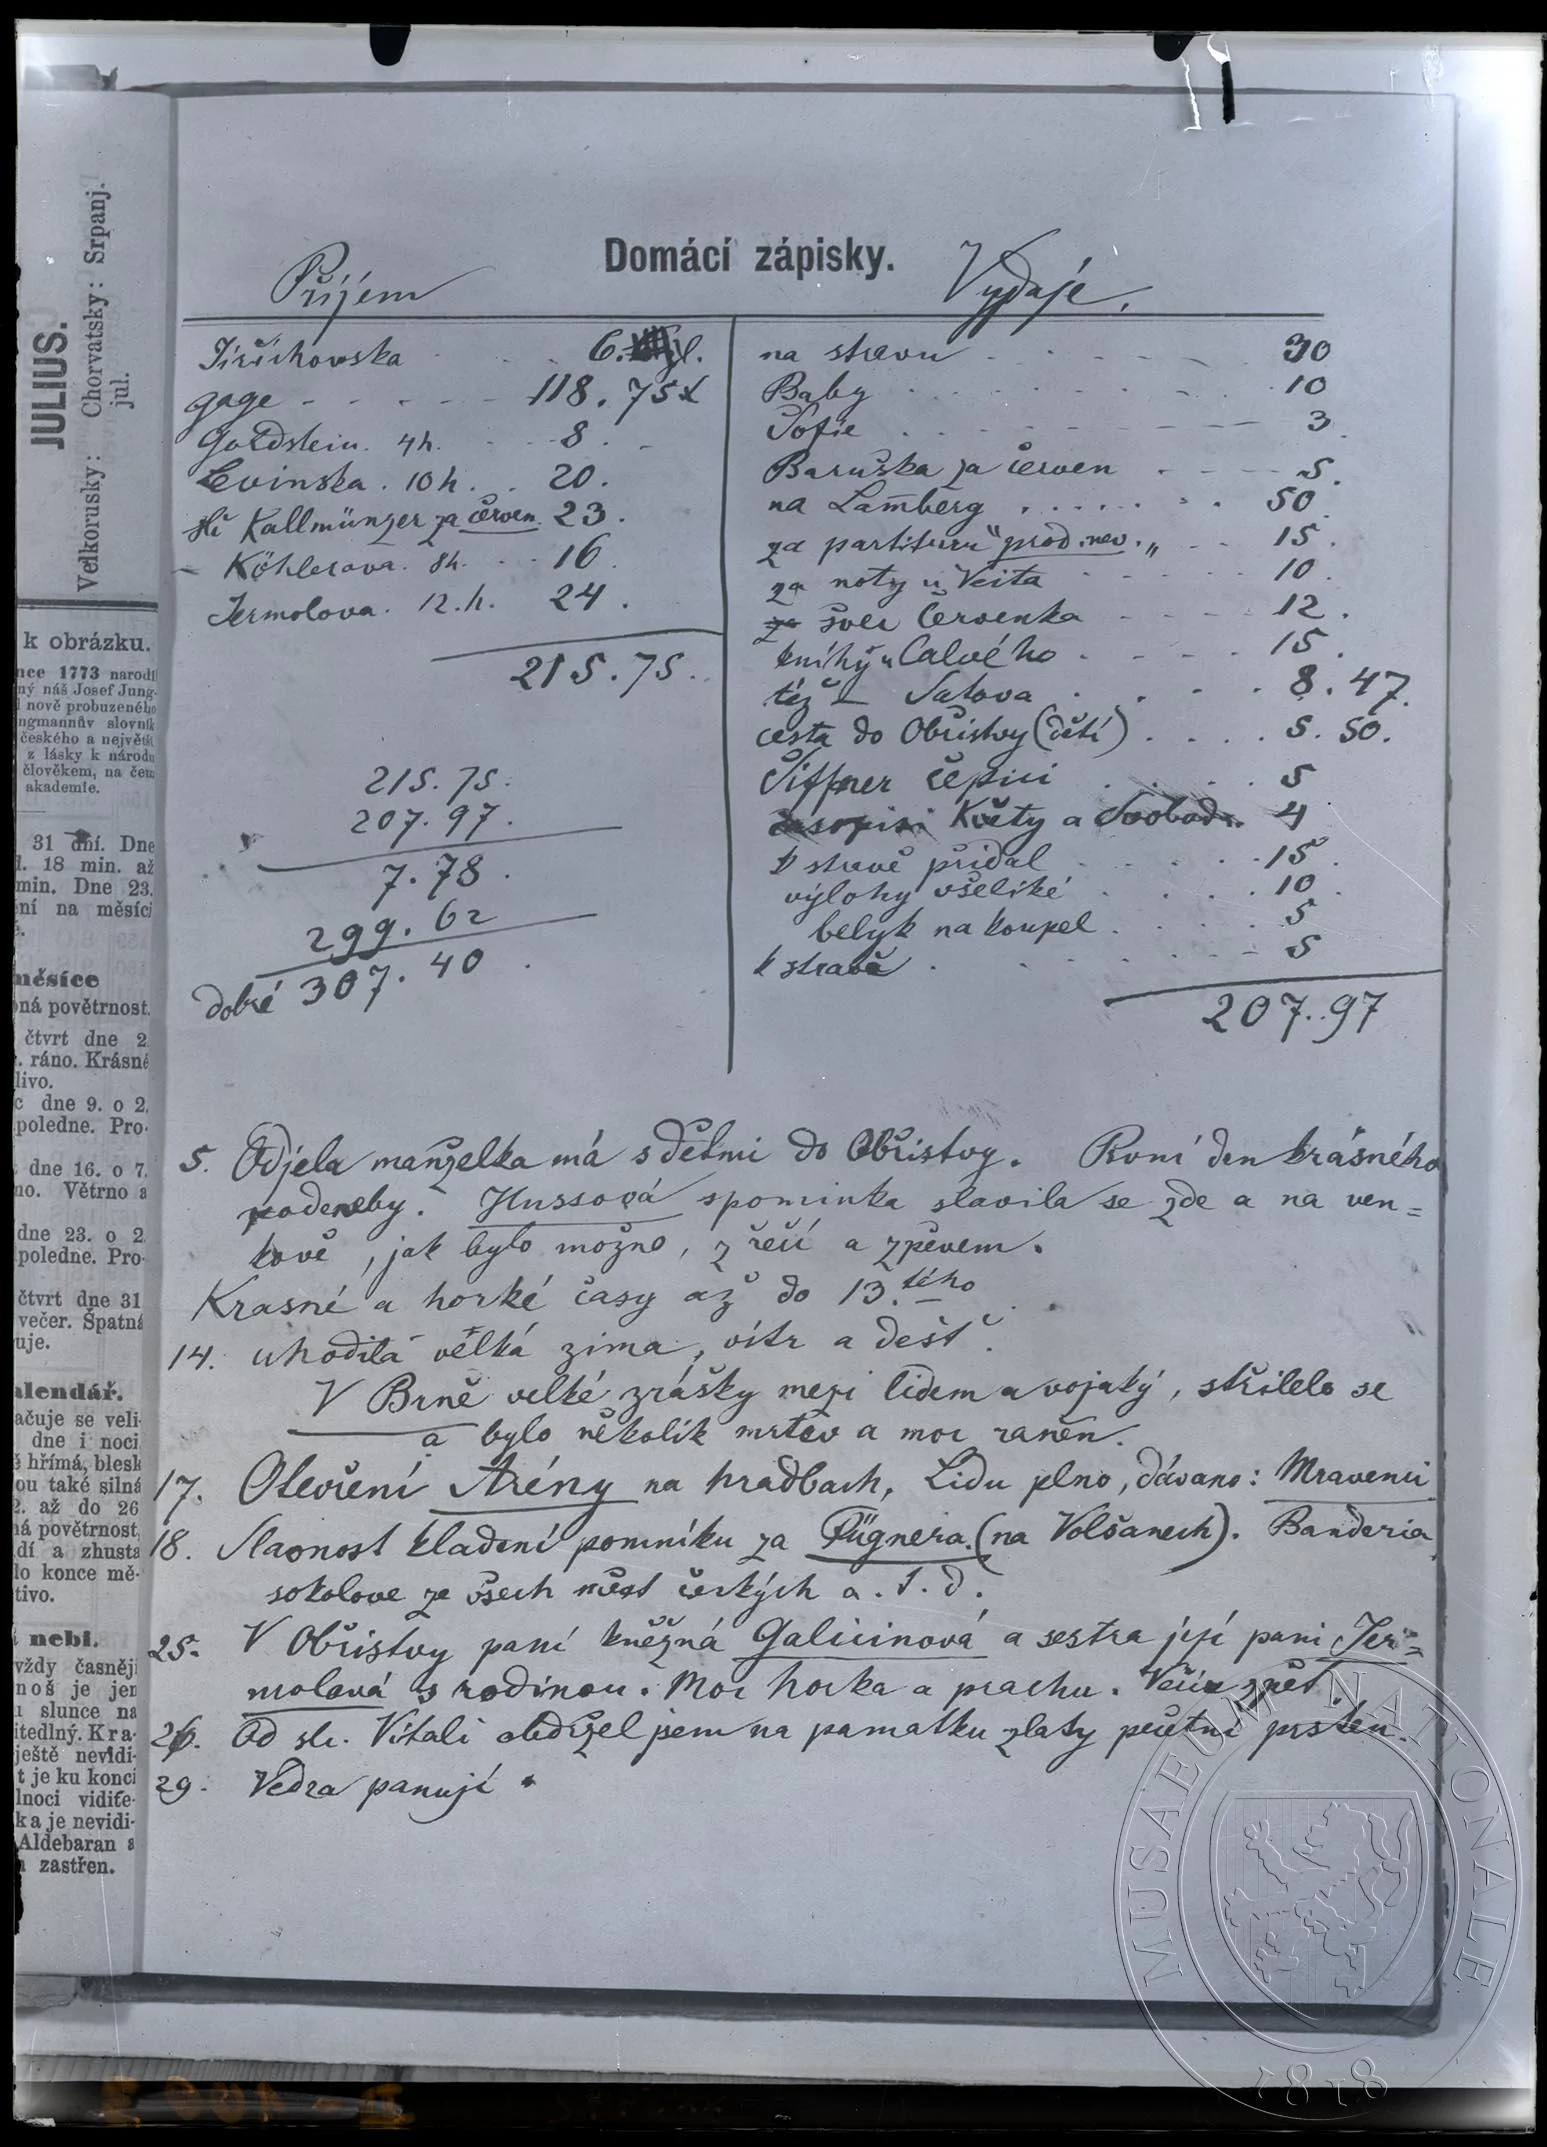 JULIUS.
Velkorusky: Chorvatsky: Srpanj.
jul.
k obrázku.
nce 1773 narodi
ný náš Josef Jung-
l nově probuzeného
ngmannův slovník
českého a největší
z lásky k národu
člověkem, na čem
akademie.
31 dní. Dne
l. 18 min. až
min. Dne 23.
ení na měsíci
měsíce
ná povětrnost.
čtvrt dne 2
. ráno. Krásné
livo.
c dne 9. o 2.
poledne. Pro-
dne 16. o 7.
no. Větrno a
dne 23. o 2
poledne. Pro-
čtvrt dne 31
večer. Špatná
uje.
alendář.
ačuje se veli-
dne i noci
hřímá, blesk
ou také silná
2. až do 26
ná povětrnost,
dí a zhusta
lo konce mě-
tivo.
nebi.
vždy časněji
noš je jen
slunce na
itedlný. Kra-
ještě nevidi-
t je ku konci
lnoci vidite-
ka je nevidi-
Aldebaran a
zastřen.
Domácí zápisky.
Příjem
Vydaje.
Jiřichovska 6. zl.
gage 118.75 x
Goldstein. 4h. 8.
Levinska. 10h. 20.
Kallmünzer za červen. 23.
Köhlerova. 8h. 16.
Jermolova. 12.h. 24.
215.75.
215.75.
207.97.
7.78.
299.62
dobré 307.40.
na stravu 30
Baby 10
Sofie 3.
Baruška za červen 5.
na Lamberg 50.
za partituru "prod. nev." 15.
za noty u Veita 10.
za švec Červenka 12.
knihy u Calvého 15.
též – Satova 8.47.
cesta do Obřistvy (děti) 5.50.
Šiffner čepici 5
časopisi Květy a Svobod. 4
k stravě přidal 15.
výlohy všeliké 10.
belyk na koupel 5
k stravě 5
207..97
5. Odjela manželka má s dětmi do Obřistvy. První den krásného
podnebi. Hussová spominka slavila se zde a na ven=
kově, jak bylo možno, z řečí a zpěvem.
Krasné a horké časy až do 13.tého
14. uhodila velká zima, vítr a déšť.
V Brně velké zrášky mezi lidem a vojaký, střilelo se
a bylo několik mrtev a moc raněn.
17. Otevření Arény na hradbach, Lidu plno, dávano: Mravenci
18. Slavnost kladení pomníku za Fügnera (na Volšanech). Banderia,
sokolove ze všech měst českých a.t.d.
25. V Obřistvy paní kněžná Galicinová a sestra její pani Jer=
molová s rodinou. Moc horka a prachu. Večír zpět.
26. Od sl. Vitali obdržel jsem na pamatku zlaty pečetní prsten.
29. Vedra panují.
MUSAEUM NATIONALE
1818